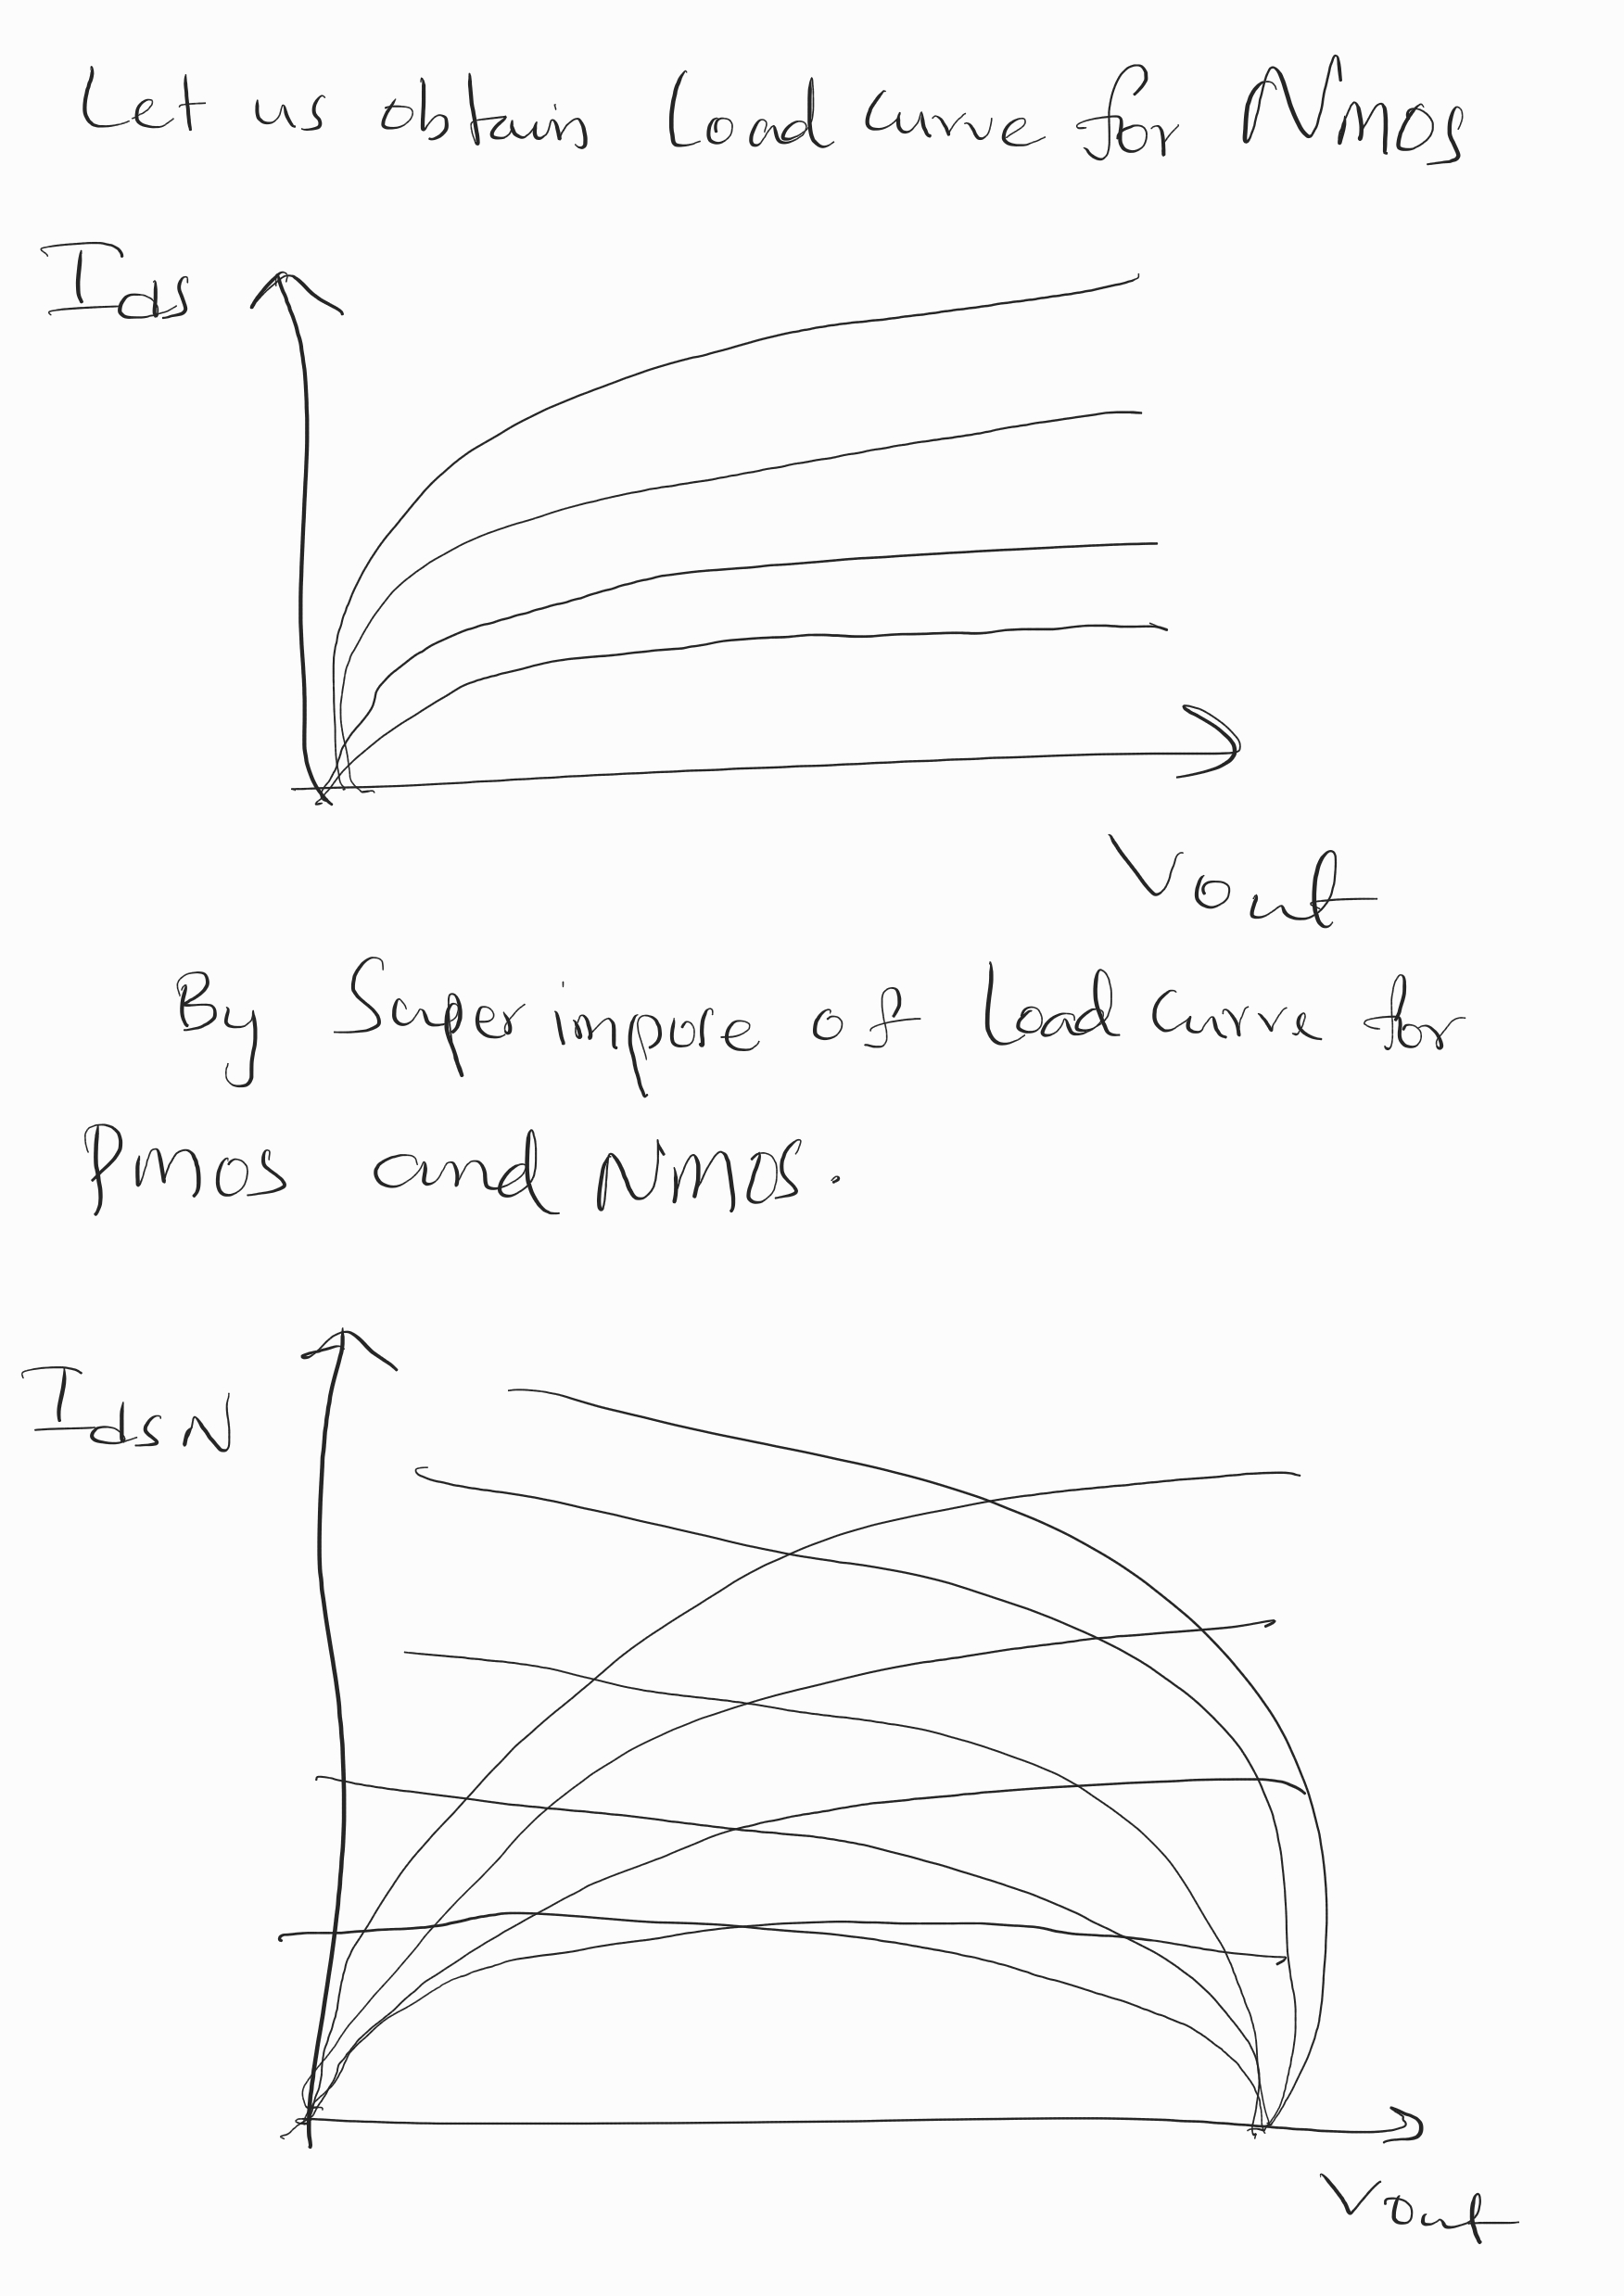 Let us obtain load curve for Nmos
Ids
Vout
By Superimpore of load curve for
PMOS and NMOS.
IdsN
Vout